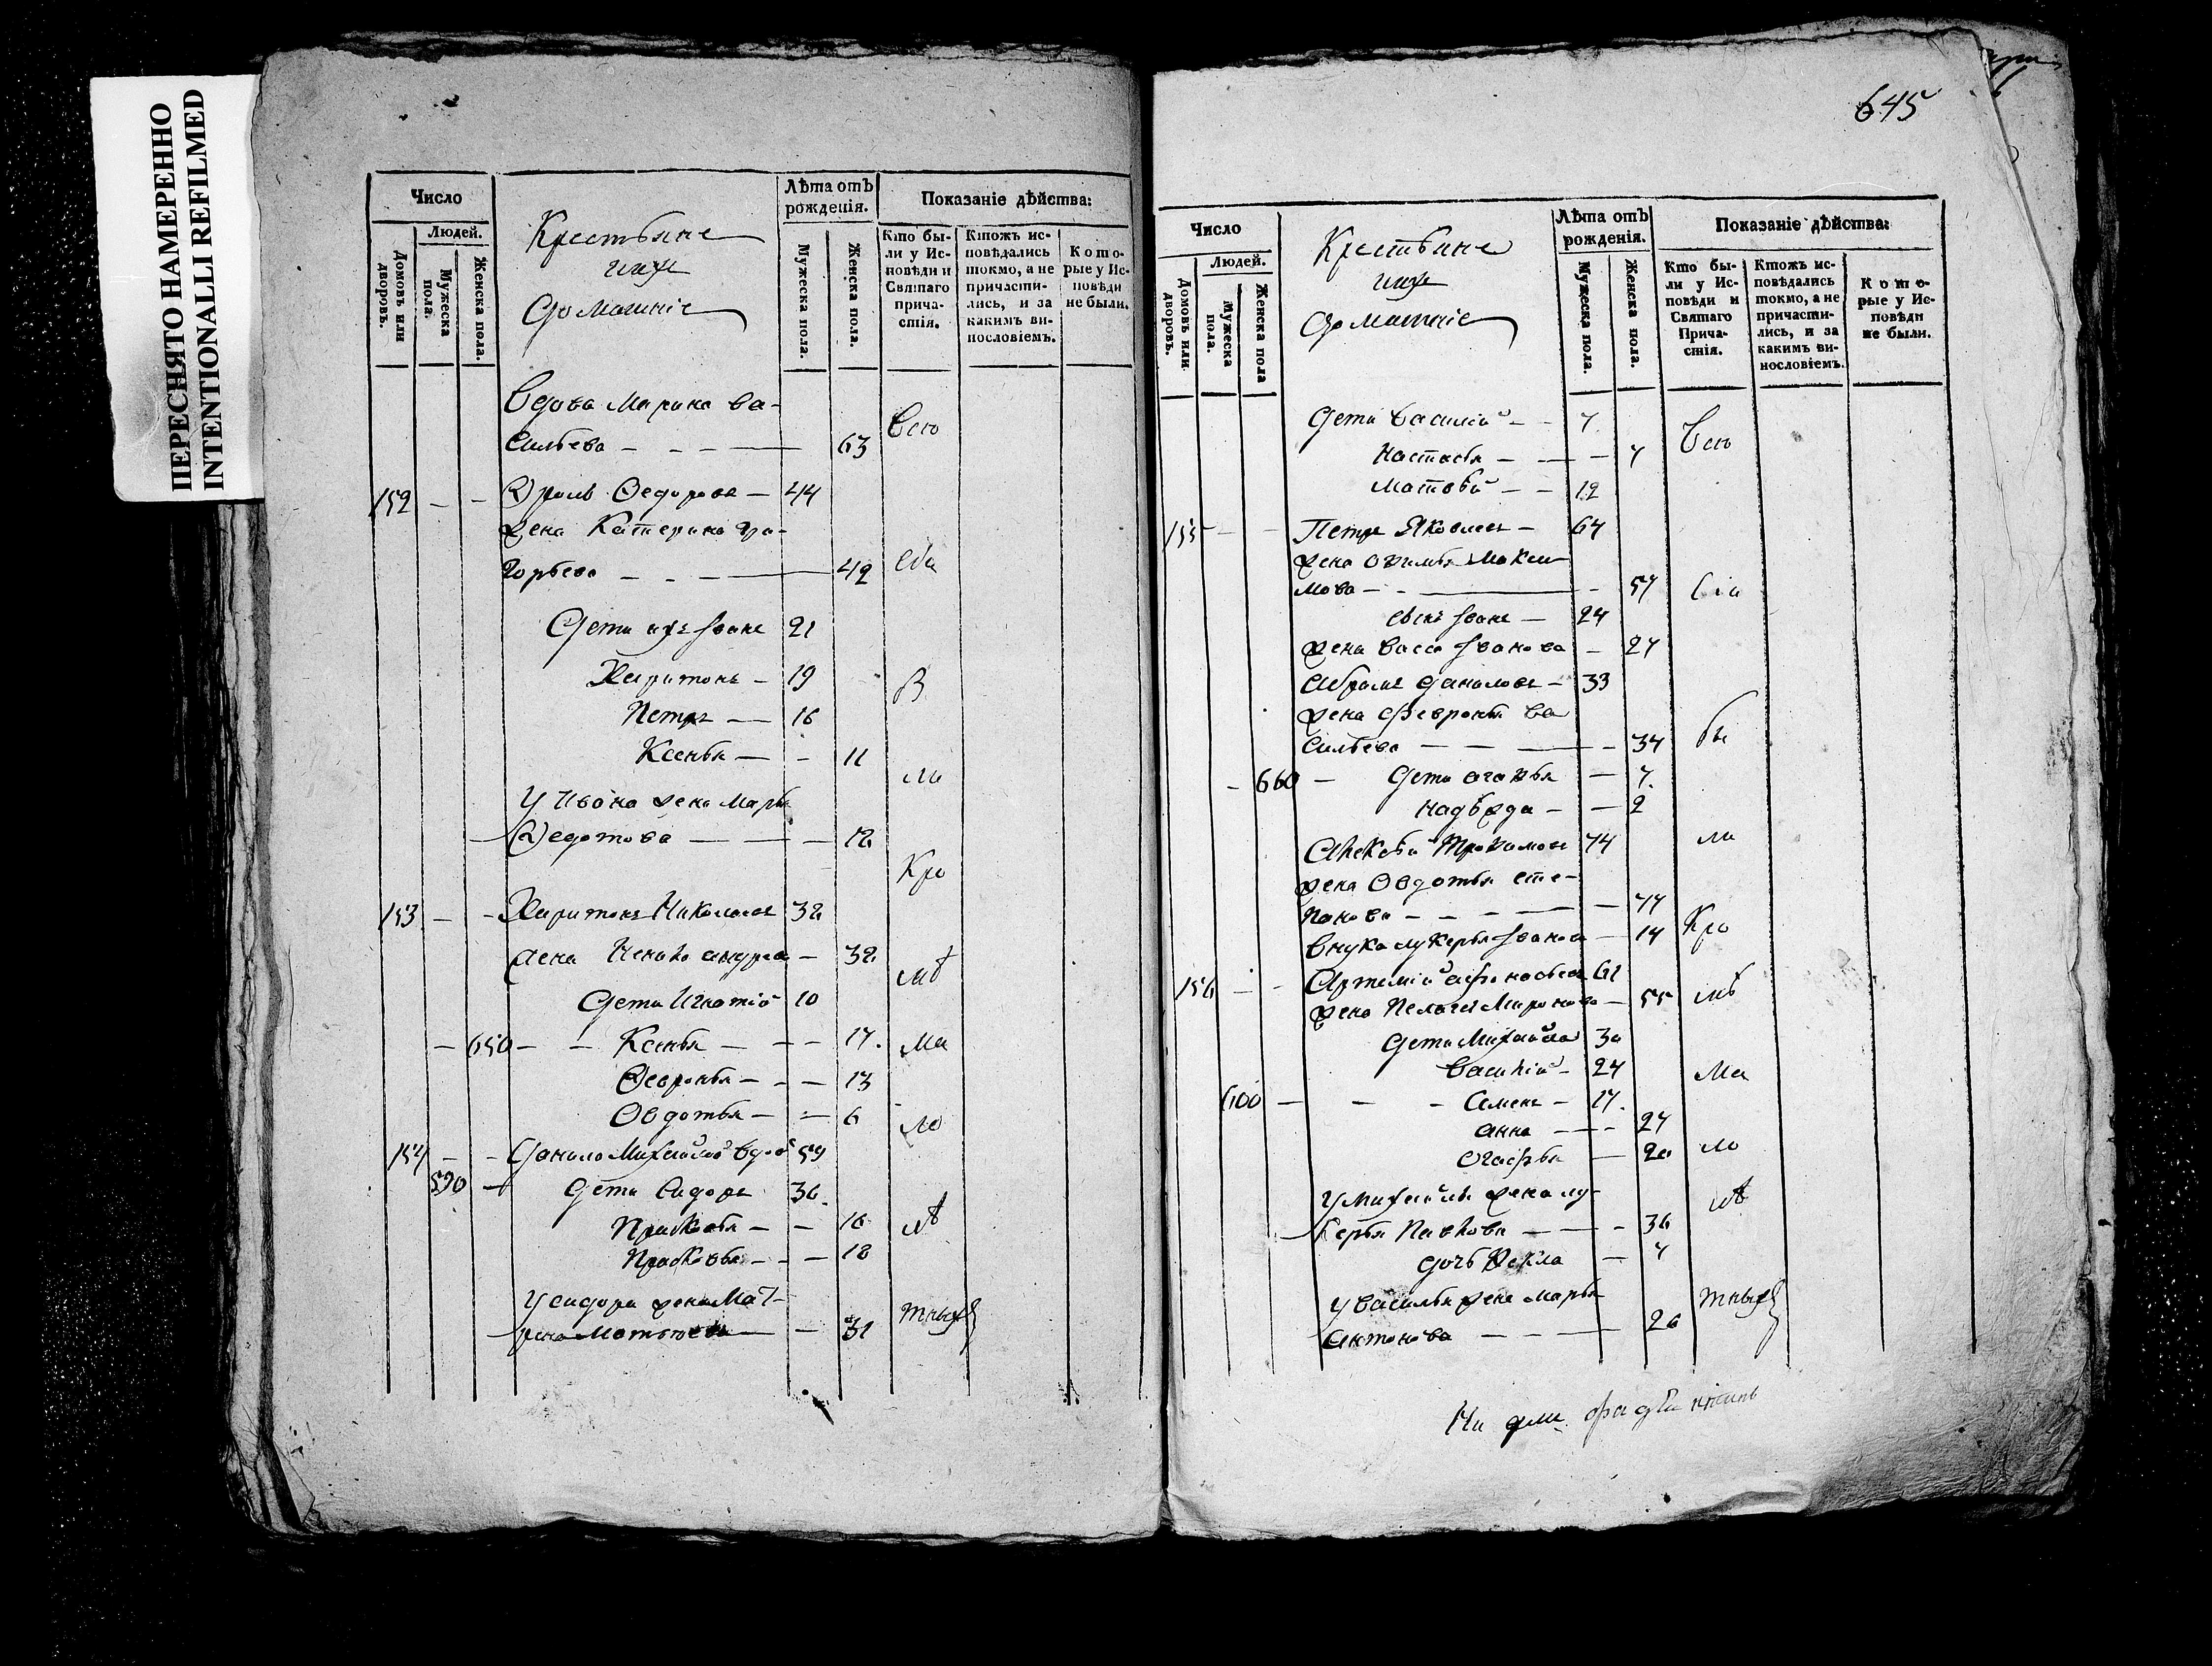 ПЕРЕСНЯТО НАМЕРЕННО
INTENTIONALLI REFILMED
Число
Людей.
Домовъ или дворовъ.
Мужеска пола.
Женска пола.
Крестьяне
ихъ
домашніе
Лѣта отъ рожденія.
Мужеска пола.
Женска пола.
Показаніе дѣйства:
Кто бы-
ли у Ис-
повѣди и
Святаго
прича-
стія.
Ктожъ ис-
повѣдались
токмо, а не
причасти-
лись, и за
какимъ ви-
нословіемъ.
Кото-
рые у Ис-
повѣди
не были.
Вдова Марина Ва-
сильева 63 Всю
152 Фролъ Федоровъ 44
жена Катерина Гри-
горьева 42
Дети ихъ Іванъ 21
Харитонъ 19
Петръ 16
Ксенья 11
У Ивана жена Марья
Федотова
Кро
153 Харитонъ Николаевъ 32
жена 32
мѣ
Дети Игнатій 10
650 Ксенья 17 Ма
Февронья 13
Овдотья 6 ло
154 Данило Михайловъ вдов 59
590 Дети Сидоръ 36
Прасковья 16 лѣ
Прасковья 18
У Сидора жена Мат-
рена 31 тныхъ
645
Число
Людей.
Домовъ или дворовъ.
Мужеска пола.
Женска пола
Крестьяне
ихъ
домашніе
Лѣта отъ рожденія.
Мужеска пола.
Женска пола.
Показаніе дѣйства:
Кто бы-
ли у Ис-
повѣди и
Святаго
Прича-
стія.
Ктожъ ис-
повѣдались
токмо, а не
причасти-
лись, и за
какимъ ви-
нословіемъ.
Кото-
рые у Ис-
повѣди
не были.
Дети Василій 7 Всю
Настасья 7
Матвѣй 12
155 Петръ Яковлевъ 64
жена Максі-
мова 57
сынъ Іванъ 24
жена Васса Іванова 27
Абрамъ Даниловъ 33
жена Февронья Ва
сильева 34 бы
660 Дети Агафья 7
Надѣжда 2
Алексѣй Трофимовъ 74 ли
жена Овдотья Сте-
панова 77
Внука Лукерья Іванова 14 Кро
156 Артемій Афанасьевъ 61
жена Пелагея Миронова 55 мѣ
Дети Михайла 30
Василій 24 Ма
600 Семенъ 17
Анна 27
Огафья 20 ло
У Михайлы жена Лу-
керья Павлова 36 лѣ
дочь Фекла
У Василья жена Марья
Антонова 26 тныхъ